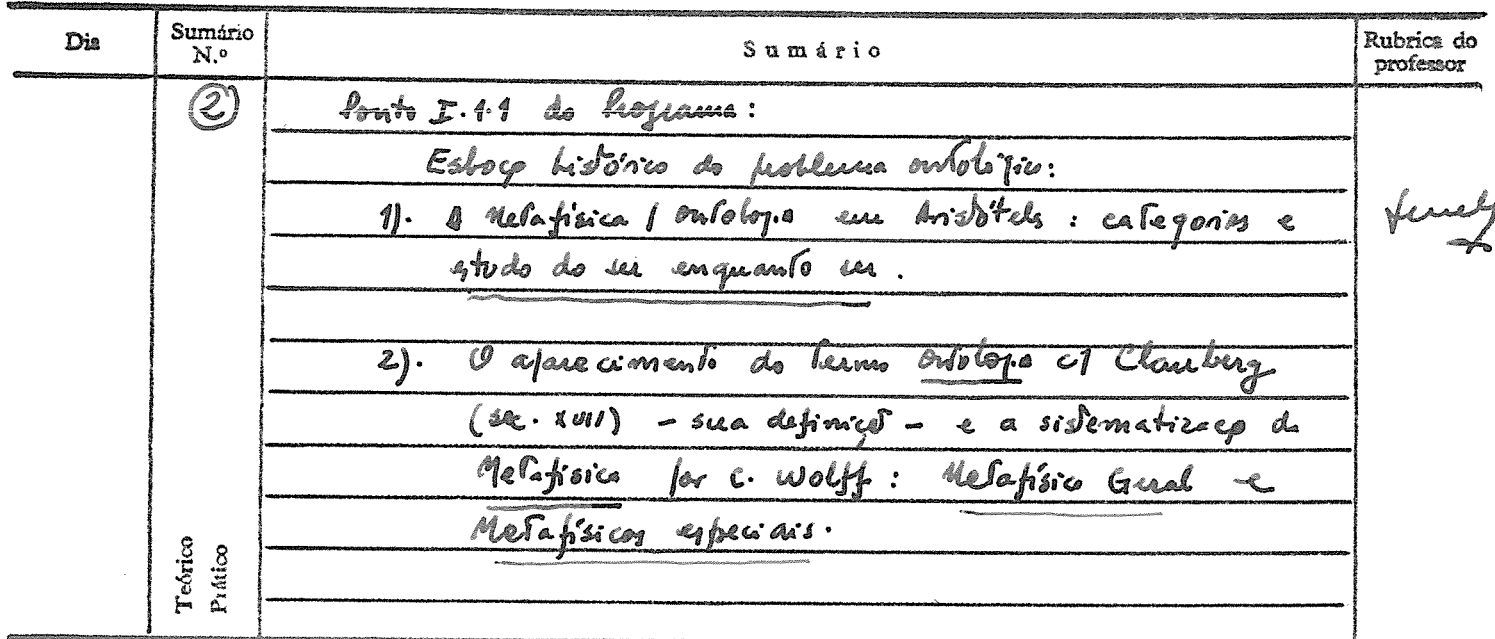 Dia Sumário N.º Sumário Rubrica do professor
② Ponto I.1.1 do Programa:
Esboço histórico do problema ontológico:
1). A Metafísica / ontologia em Aristóteles : categorias e
estudo do ser enquanto ser.
2). O aparecimento do termo ontologia c/ Clauberg
(séc. XVII) – sua definição – e a sistematização da
Metafísica por C. Wolff : Metafísica Geral e
Metafísicas especiais.
Teórico
Prático